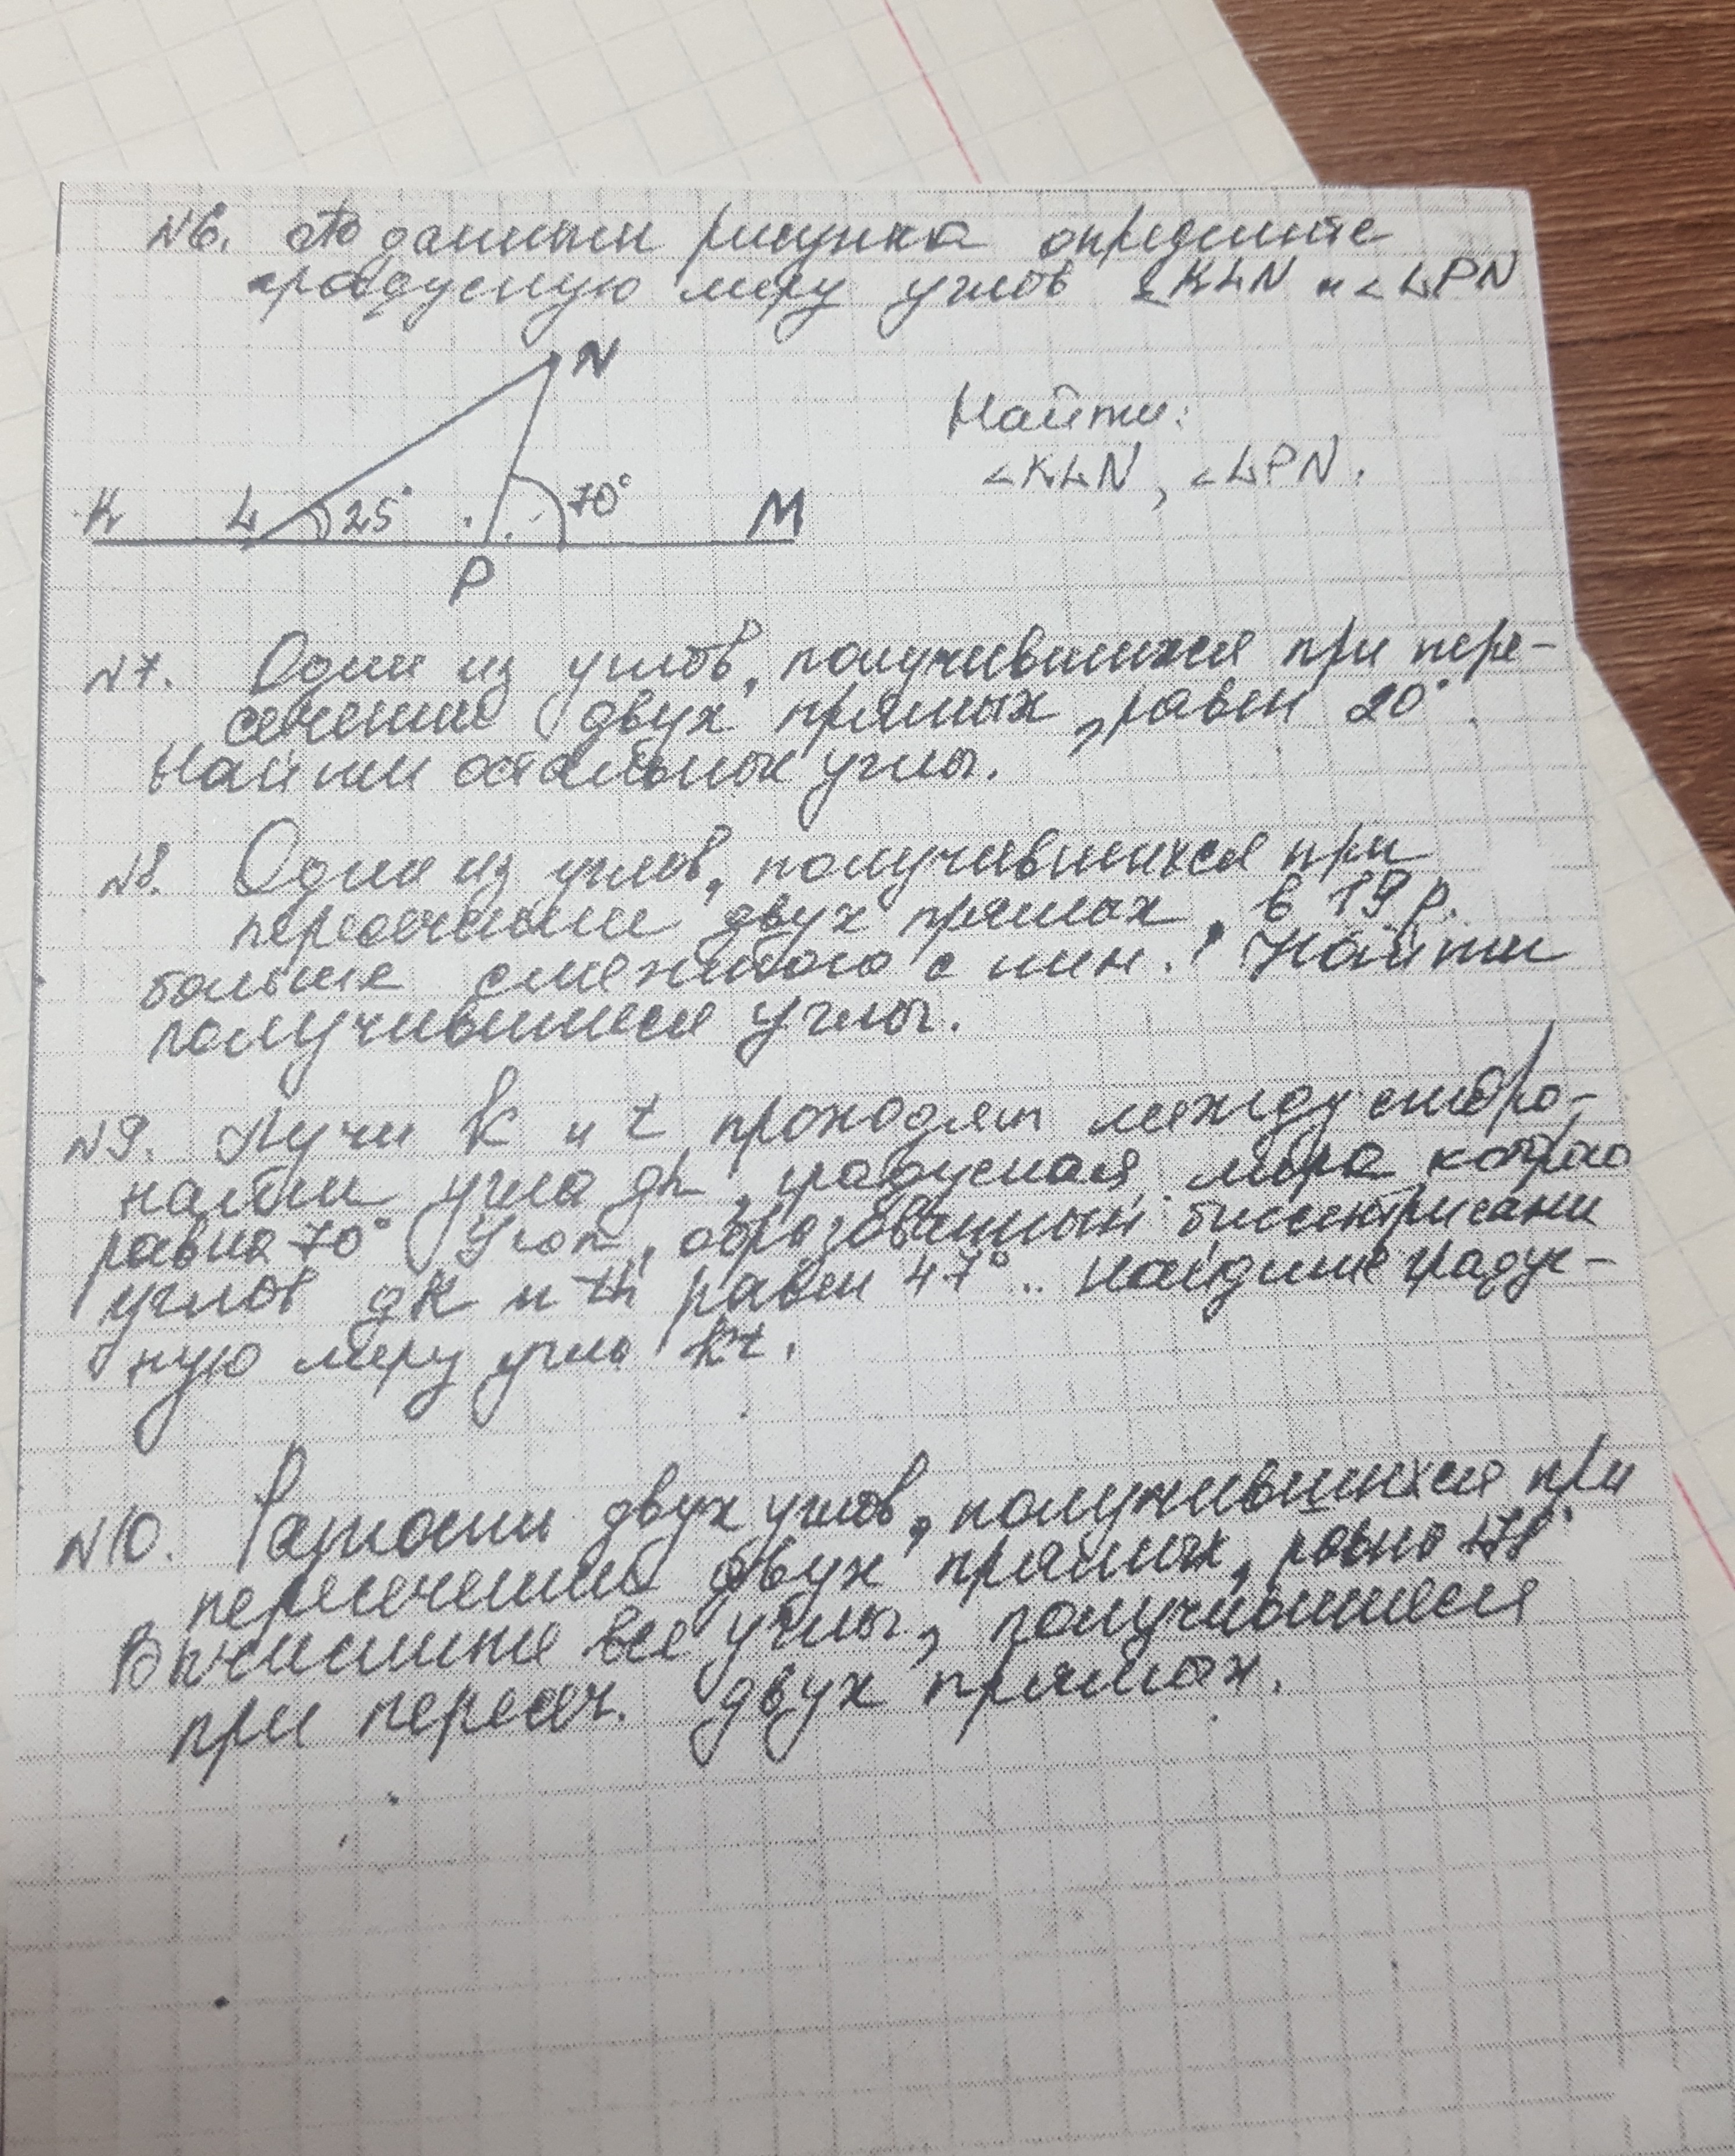 N6. По данным рисунка определите
градусную меру углов ∠KLN и ∠LPN
N
Найти:
∠KLN, ∠LPN.
K L 25° 70° M
P
N7. Один из углов, получившихся при пере-
сечении двух прямых, равен 20°.
Найти остальные углы.
N8. Один из углов, получившихся при
пересечении двух прямых, в 19 р.
больше смежного с ним. Найти
получившиеся углы.
N9. Лучи k и t проходят между сторо-
нами угла gh, градусная мера которого
равна 70° Угол, образованный биссектрисами
углов gk и th равен 47°. Найдите градус-
ную меру угла kt.
N10. Разности двух углов, получившихся при
пересечении двух прямых, равно 178°
Вычислите все углы, получившиеся
при пересеч. двух прямых.